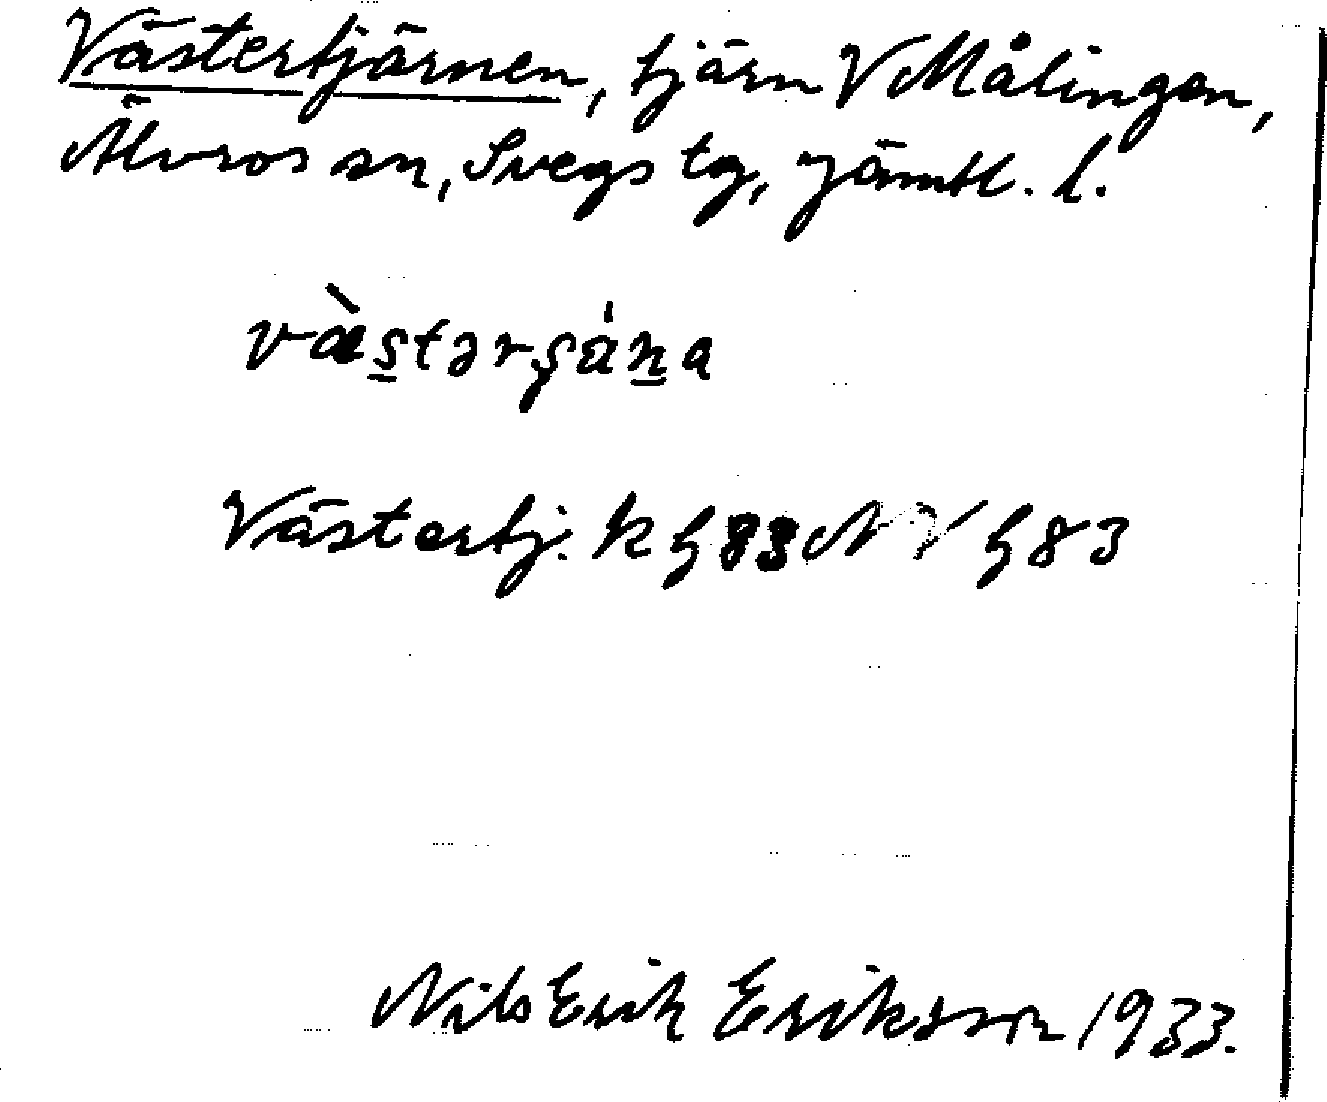 Västertjärnen, tjärn V Målingen,
Älvros sn, Svegs tg, Jämtl. l.
væ̀s̱tərʂȧṉa
Västertj. k h 83 NV h 83
Nils Erik Eriksson 1933.